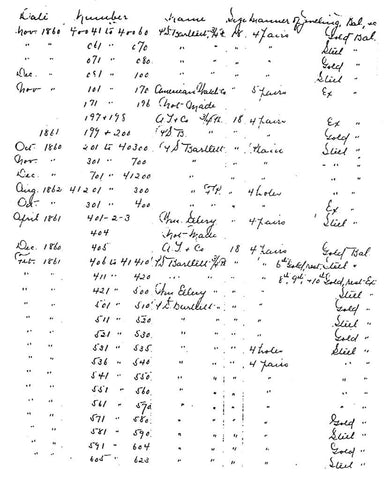 Date Number Name Size Manner of Bal,
Nov 1860 40041 to 40060 P.S. Bartlett 18 4 pairs Gold Bal
" " 061 " 070 " " " " Steel "
" " 071 " 080 " " " " Gold "
Dec. " 091 " 100 " " " " Steel "
Nov " 101 " 170 American " 5 pairs Ex "
171 " 196 Not Made
197 + 198 A.T. + Co 18 4 pairs Ex "
1861 199 + 200 P.S.B. " " " Gold "
Oct 1860 201 to 40300 P.S. Bartlett " Plain Steel "
Nov " 301 " 700 " " " " "
Dec " 701 " 41200 " " " " "
Aug. 1862 41201 " 300 " " 4 holes " "
Oct " " 301 " 400 " " " Ex "
April 1861 401-2-3 Wm. Ellery " 4 pairs Steel "
404 Not Made
Dec. 1860 405 A.T. + Co 18 4 pairs Gold Bal.
Feb. 1861 406 to 41410 P.S. Bartlett " " 5th Gold, rest Steel "
" " 411 " 420 " " " 8th, 9th + 10th Gold, rest
" " 421 " 500 Wm Ellery " " " Steel "
" " 501 " 510 P.S. Bartlett " " " Gold "
" " 511 " 530 " " " " Steel "
" " 521 " 530. " " " " Gold "
" " 531 " 535. " " " 4 holes Steel "
" " 536 " 540 " " " 4 pairs " "
" " 541 " 550 " " " " " "
" " 551 " 560. " " " " " "
" " 561 " 570 " " " " " "
" " 571 " 580 " " " " Gold "
" " 581 " 590. " " " " Steel "
" " 591 " 604 " " " " Gold "
" " 605 " 623 " " " " Steel "